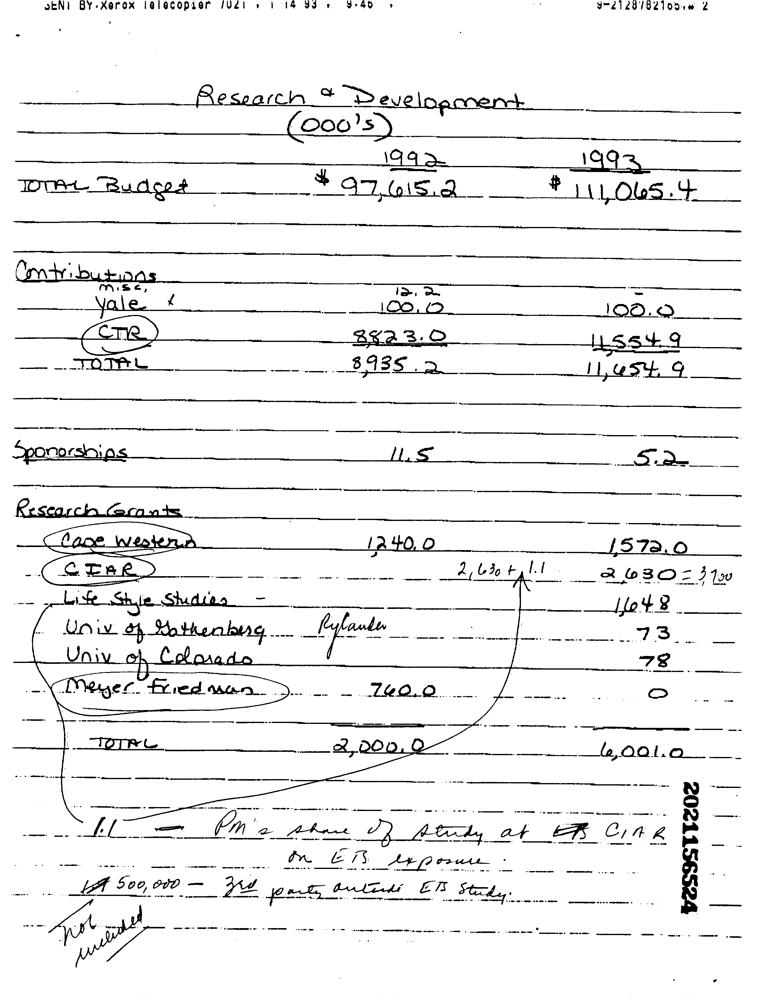 SENT BY:Xerox Telecopier 7021 ; 1 14 93 ; 9:46 ; 9-2128782165;# 2
Research & Development
(000's)
1992 1993
TOTAL Budget $ 97,615.2 $ 111,065.4
Contributions
misc. 12.2 -
Yale 100.0 100.0
CTR 8823.0 11,554.9
TOTAL 8,935.2 11,654.9
Sponorships 11.5 5.2
Research Grants
Case Western 1,240.0 1,572.0
CIAR 2,630 + 1.1 2,630 = 3,700
Life Style Studies - 1,648
Univ of Gothenberg Rylander 73
Univ of Colorado 78
Meyer Friedman 760.0 0
TOTAL 2,000.0 6,001.0
1.1 — PM's share of study at CIAR
on ETS exposure.
500,000 — 3rd party outside ETS Study.
not
included
2021156524